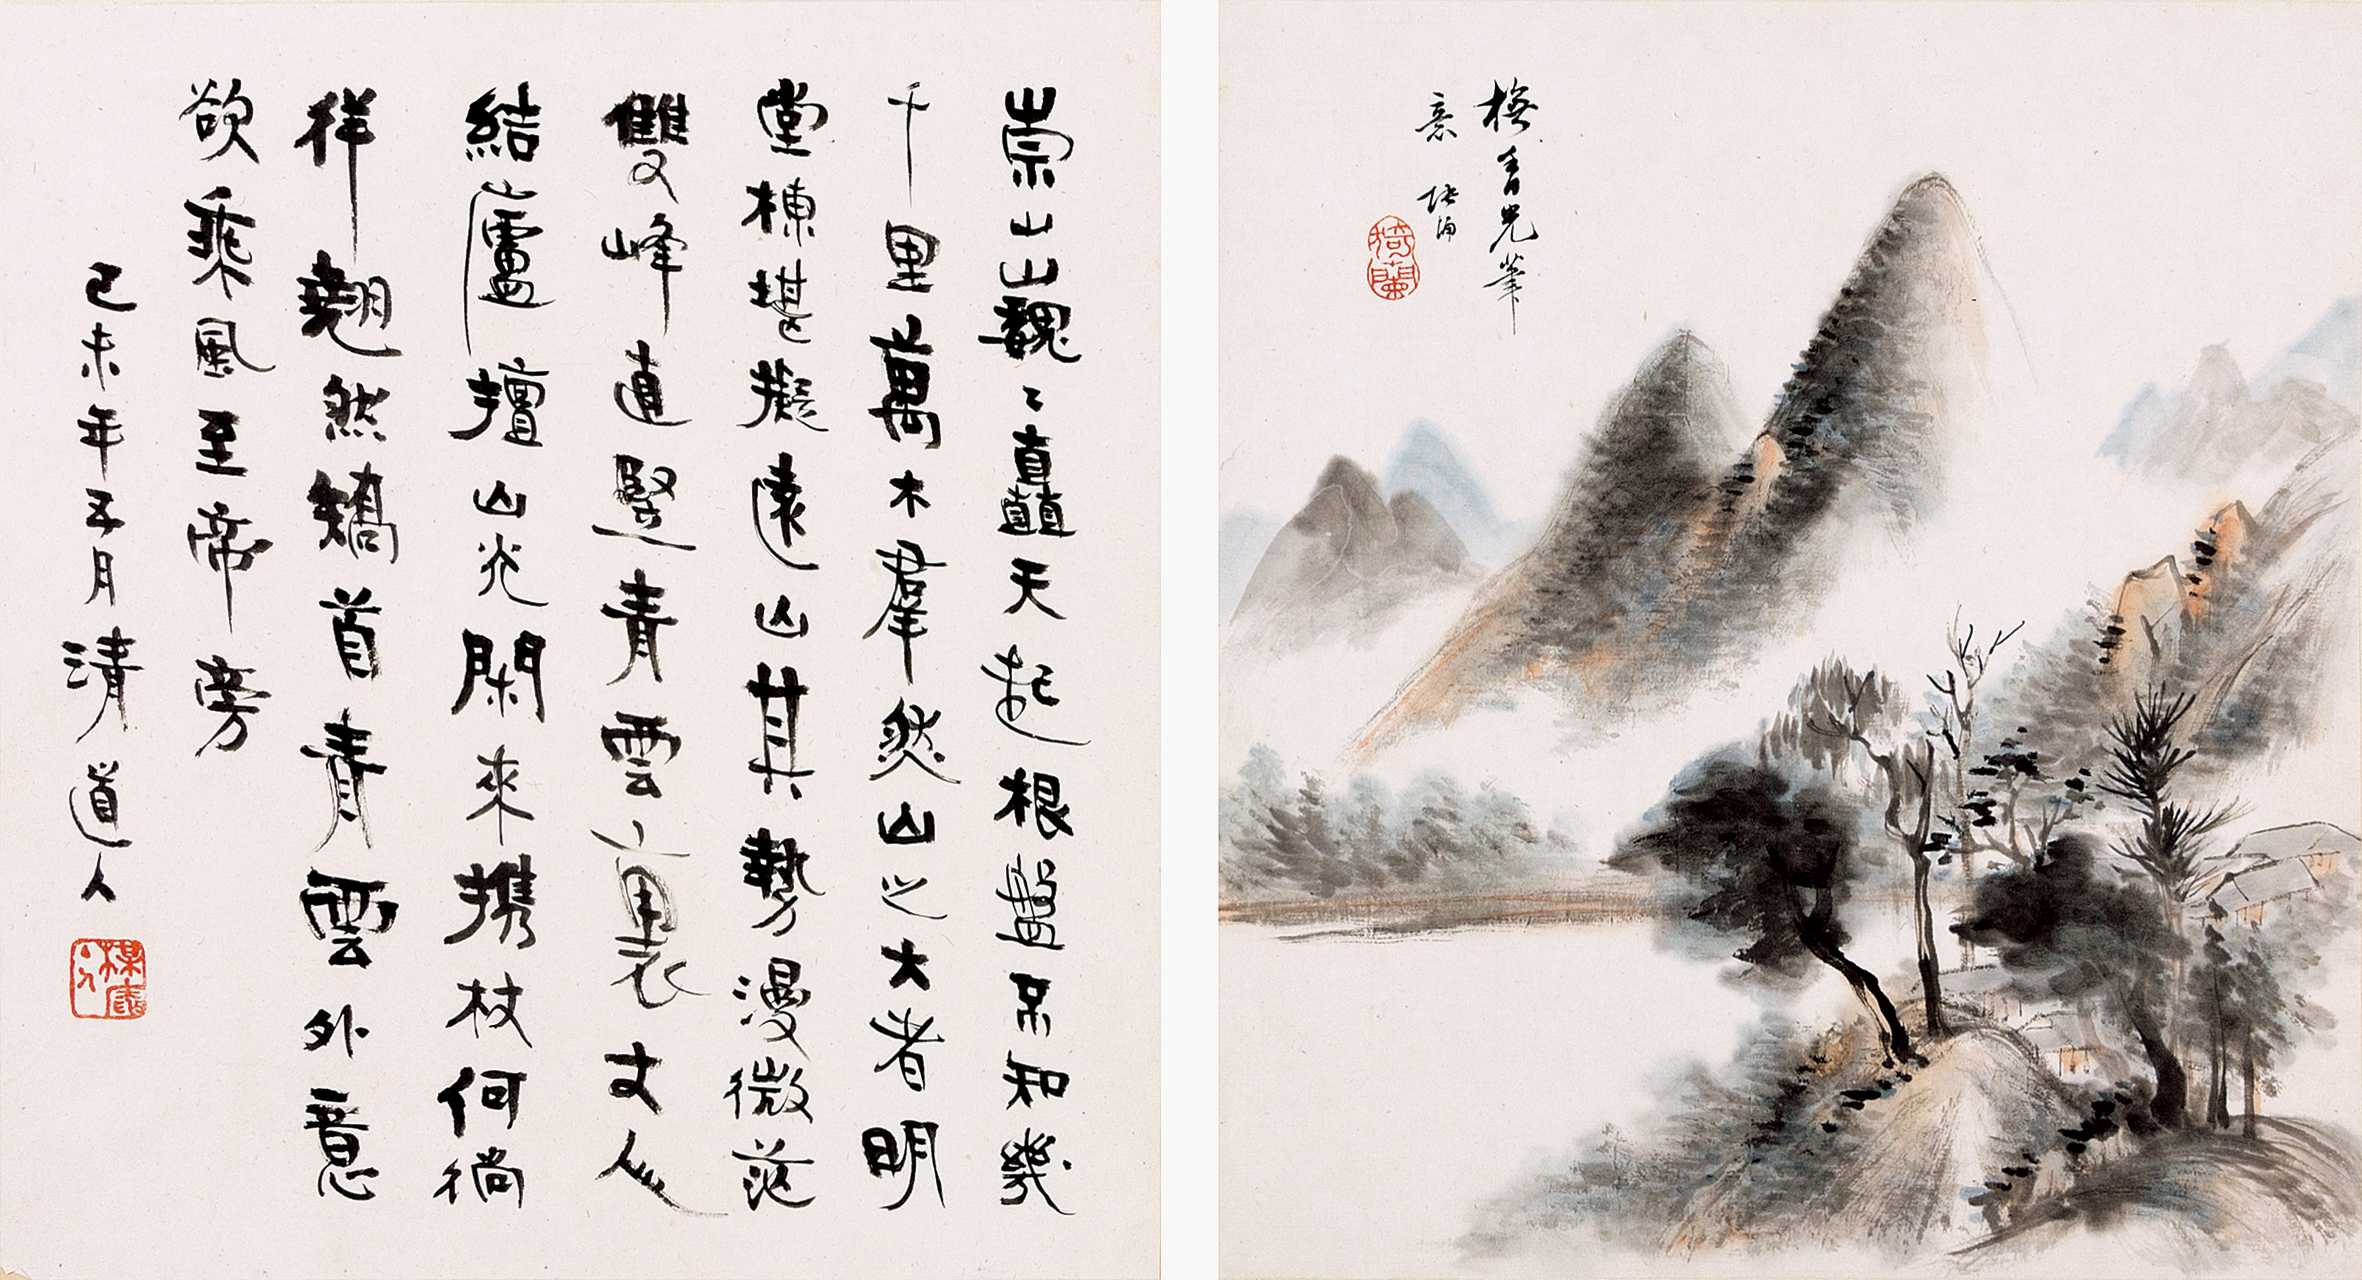 橅香光筆
意
猗蘭
崇山巍〻矗天起根盤不知幾
千里萬木羣然山之大者明
堂棟堪擬遠山其勢漫微茫
雙峰直豎青雲裏丈人
結廬擅山光閑來携杖何徜
徉翹然矯首青雲外意
欲乘風至帝旁
己未年五月清道人